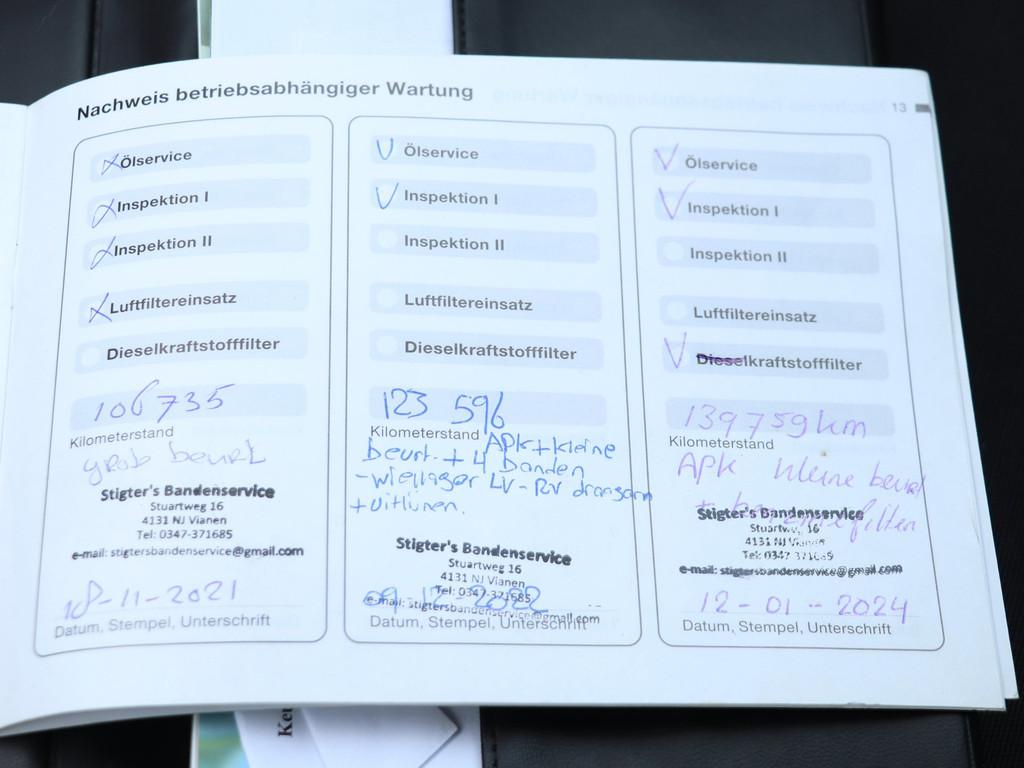 Nachweis betriebsabhängiger Wartung
13
Ölservice
Inspektion I
Inspektion II
Luftfiltereinsatz
Dieselkraftstofffilter
106735
Kilometerstand
grob beurt
Stigter's Bandenservice
Stuartweg 16
4131 NJ Vianen
Tel: 0347-371685
e-mail: stigtersbandenservice@gmail.com
18-11-2021
Datum, Stempel, Unterschrift
Ölservice
Inspektion I
Inspektion II
Luftfiltereinsatz
Dieselkraftstofffilter
123 596
Kilometerstand
APK + kleine
beurt. + 4 banden
- wiellager LV - RV draagarm
+ uitlijnen.
Stigter's Bandenservice
Stuartweg 16
4131 NJ Vianen
Tel: 0347-371685
e-mail: stigtersbandenservice@gmail.com
09-12-2022
Datum, Stempel, Unterschrift
Ölservice
Inspektion I
Inspektion II
Luftfiltereinsatz
Dieselkraftstofffilter
139759km
Kilometerstand
APK kleine beurt
Stigter's Bandenservice
Stuartw. 16
4131 NJ Vianen
Tel: 0347 371685
e-mail: stigtersbandenservice@gmail.com
12-01-2024
Datum, Stempel, Unterschrift